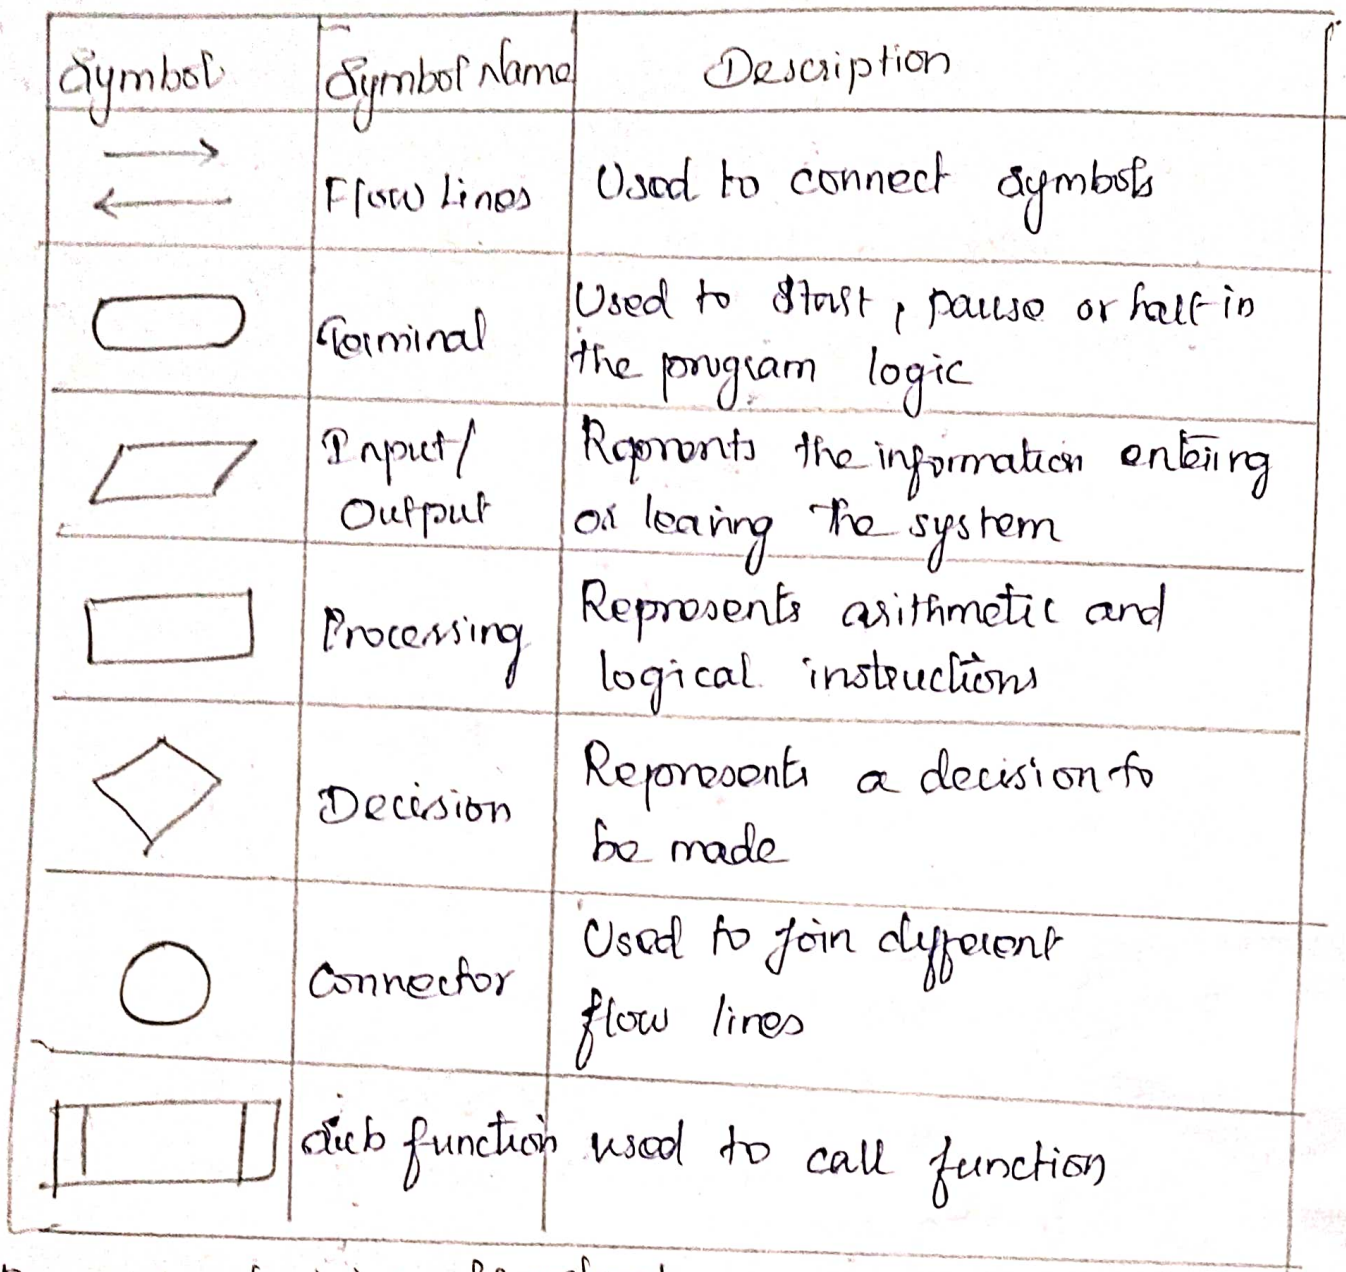 Symbol Symbol Name Description
Flow Lines Used to connect symbols
Terminal Used to start, pause or halt in
the program logic
Input/ Reprents the information entering
Output or leaving the system
Processing Represents arithmetic and
logical instructions
Decision Represents a decision to
be made
Connector Used to join different
flow lines
sub function used to call function